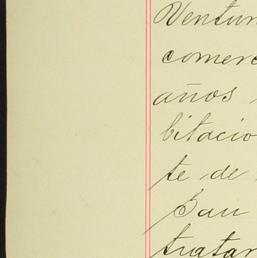 Ventur
comerc
años
bitacio
te de
San
tratar